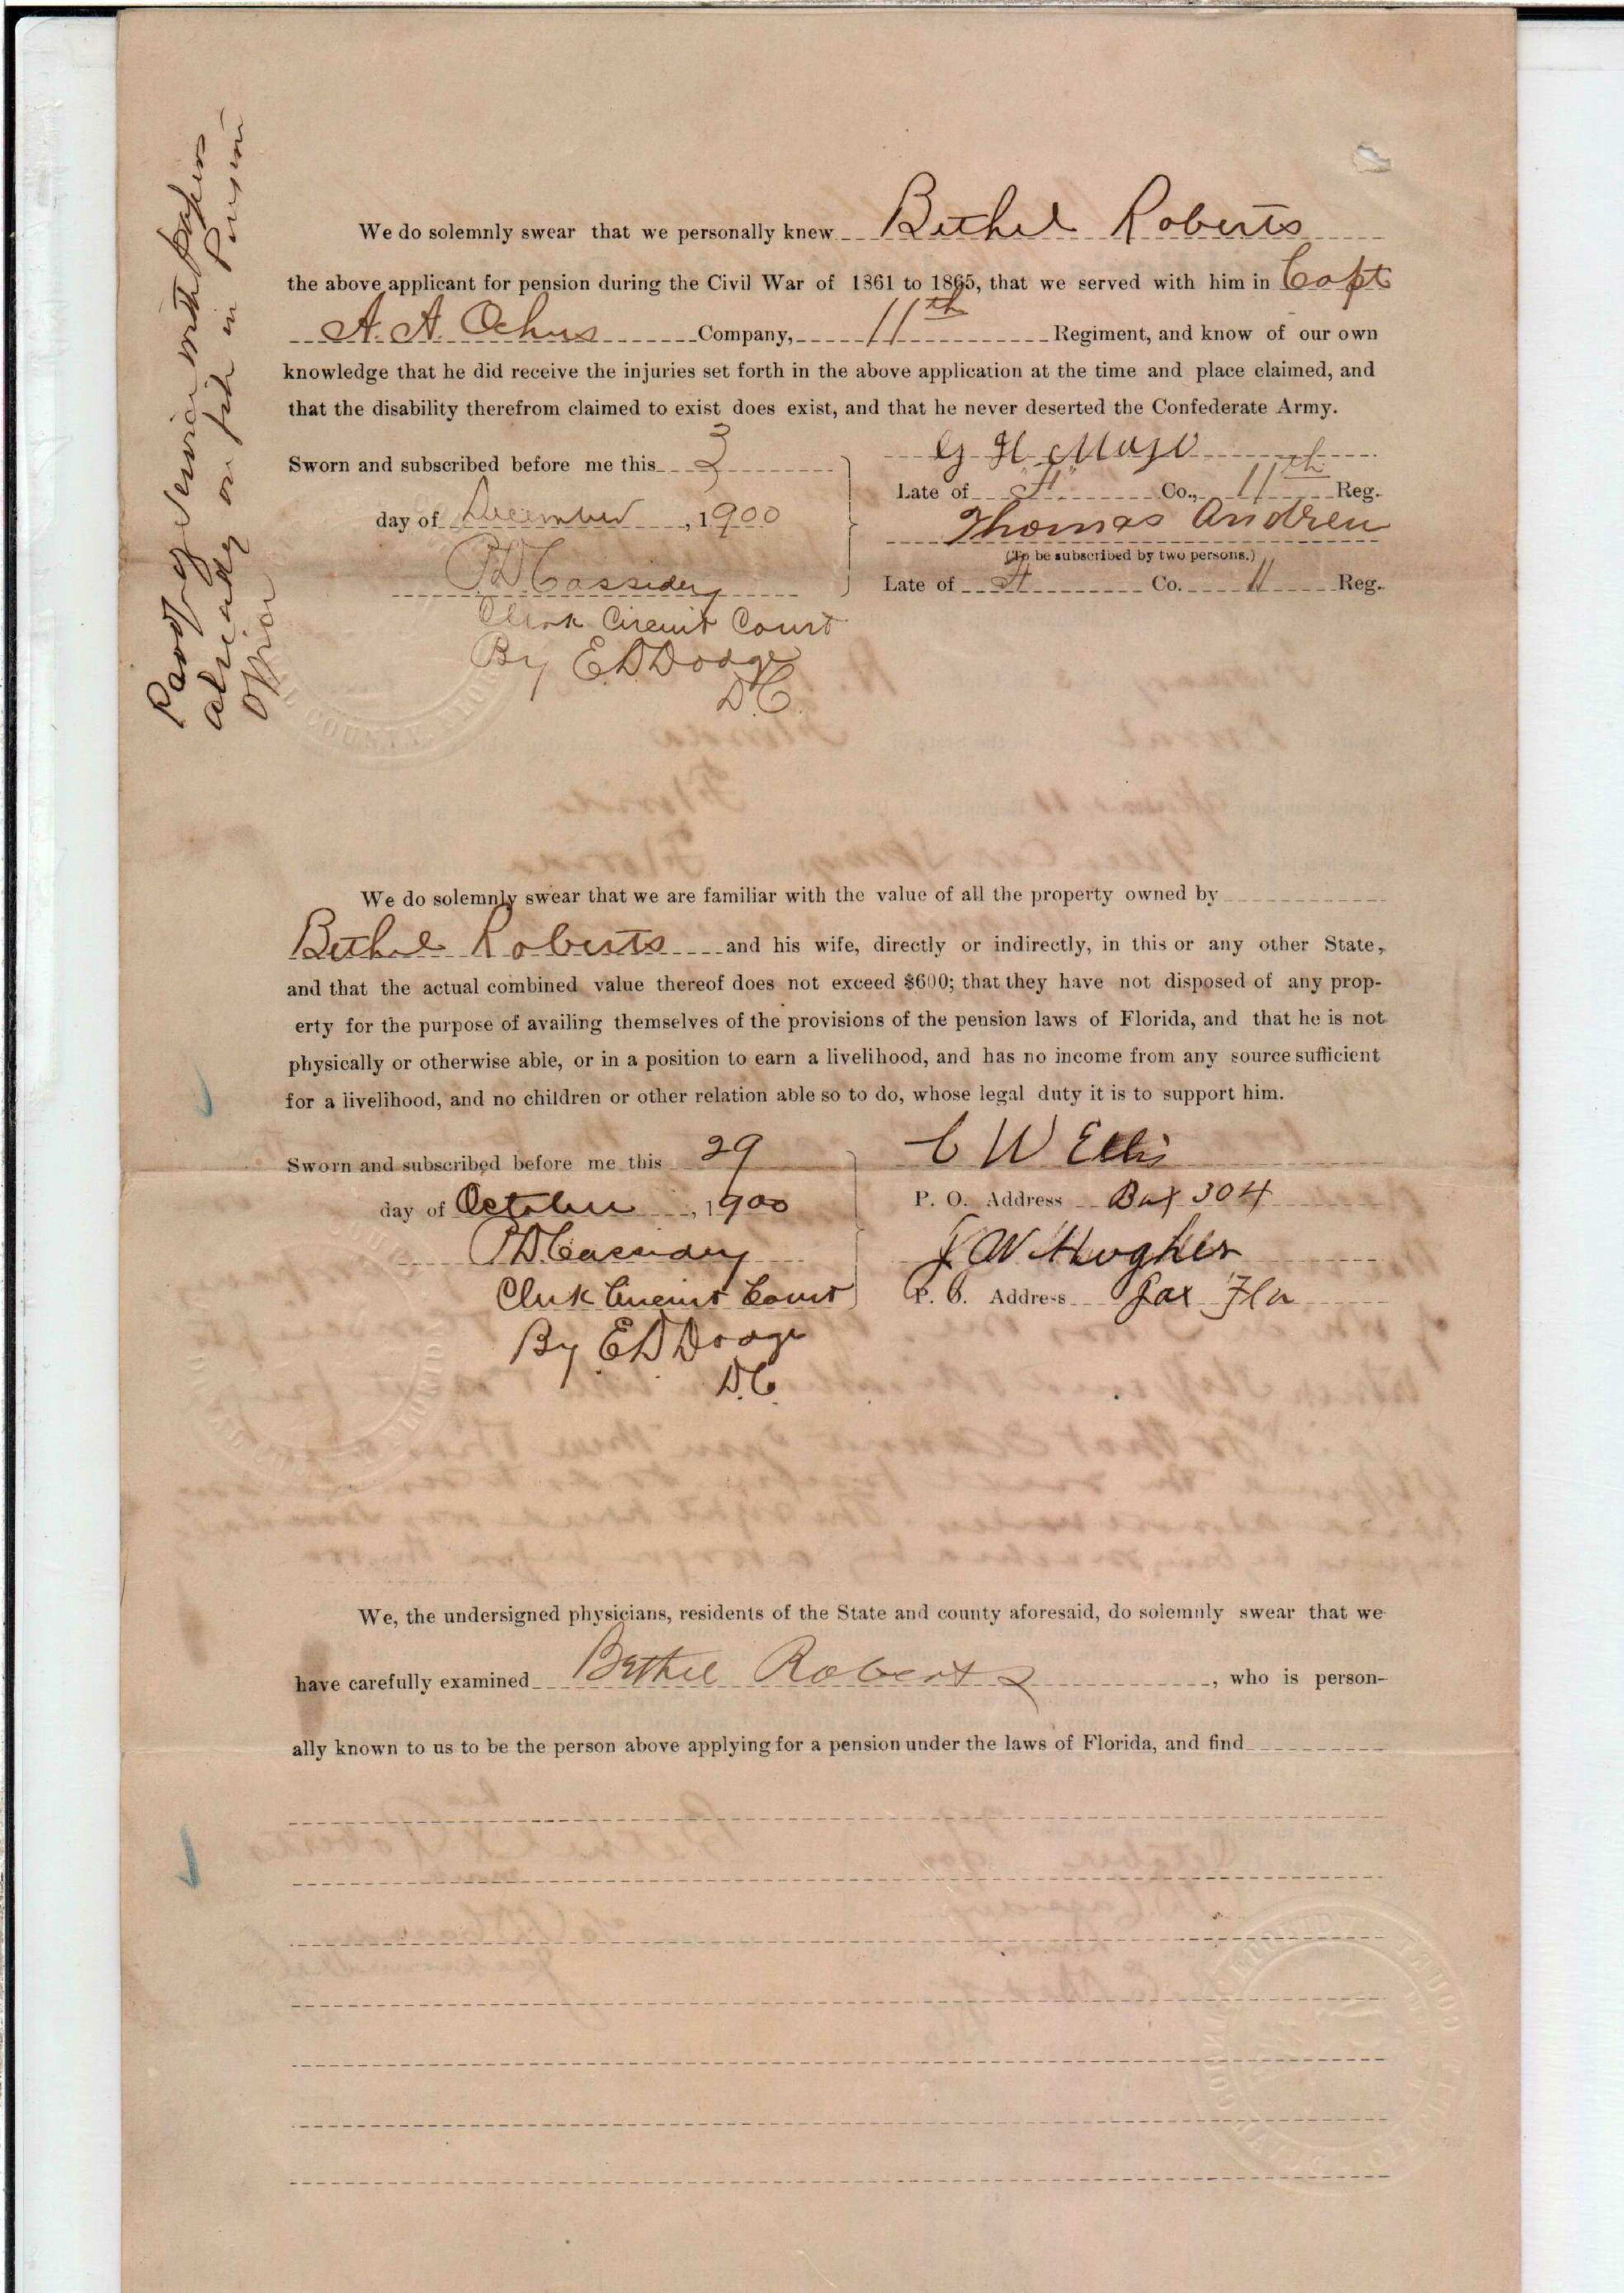 Proof of service with papers
already on file in Pension
office
We do solemnly swear that we personally knew Bethel Roberts
the above applicant for pension during the Civil War of 1861 to 1865, that we served with him in Capt
A. A. Ochus Company, 11th Regiment, and know of our own
knowledge that he did receive the injuries set forth in the above application at the time and place claimed, and
that the disability therefrom claimed to exist does exist, and that he never deserted the Confederate Army.
Sworn and subscribed before me this 3
day of December, 1900
P D Cassidey
Clerk Circuit Court
By E D Dodge
D.C.
G H Mayo
Late of "H" Co., 11th Reg.
Thomas Andreu
(To be subscribed by two persons.)
Late of H Co. 11 Reg.
COUNTY, FLOR
We do solemnly swear that we are familiar with the value of all the property owned by
Bethel Roberts and his wife, directly or indirectly, in this or any other State,
and that the actual combined value thereof does not exceed $600; that they have not disposed of any prop-
erty for the purpose of availing themselves of the provisions of the pension laws of Florida, and that he is not
physically or otherwise able, or in a position to earn a livelihood, and has no income from any source sufficient
for a livelihood, and no children or other relation able so to do, whose legal duty it is to support him.
Sworn and subscribed before me this 29
day of October, 1900
P D Cassidey
Clerk Circuit Court
By E D Dodge
D.C.
C W Ellis
P. O. Address Box 304
J W Hughes
P. O. Address Jax Fla
We, the undersigned physicians, residents of the State and county aforesaid, do solemnly swear that we
have carefully examined Bethel Roberts, who is person-
ally known to us to be the person above applying for a pension under the laws of Florida, and find